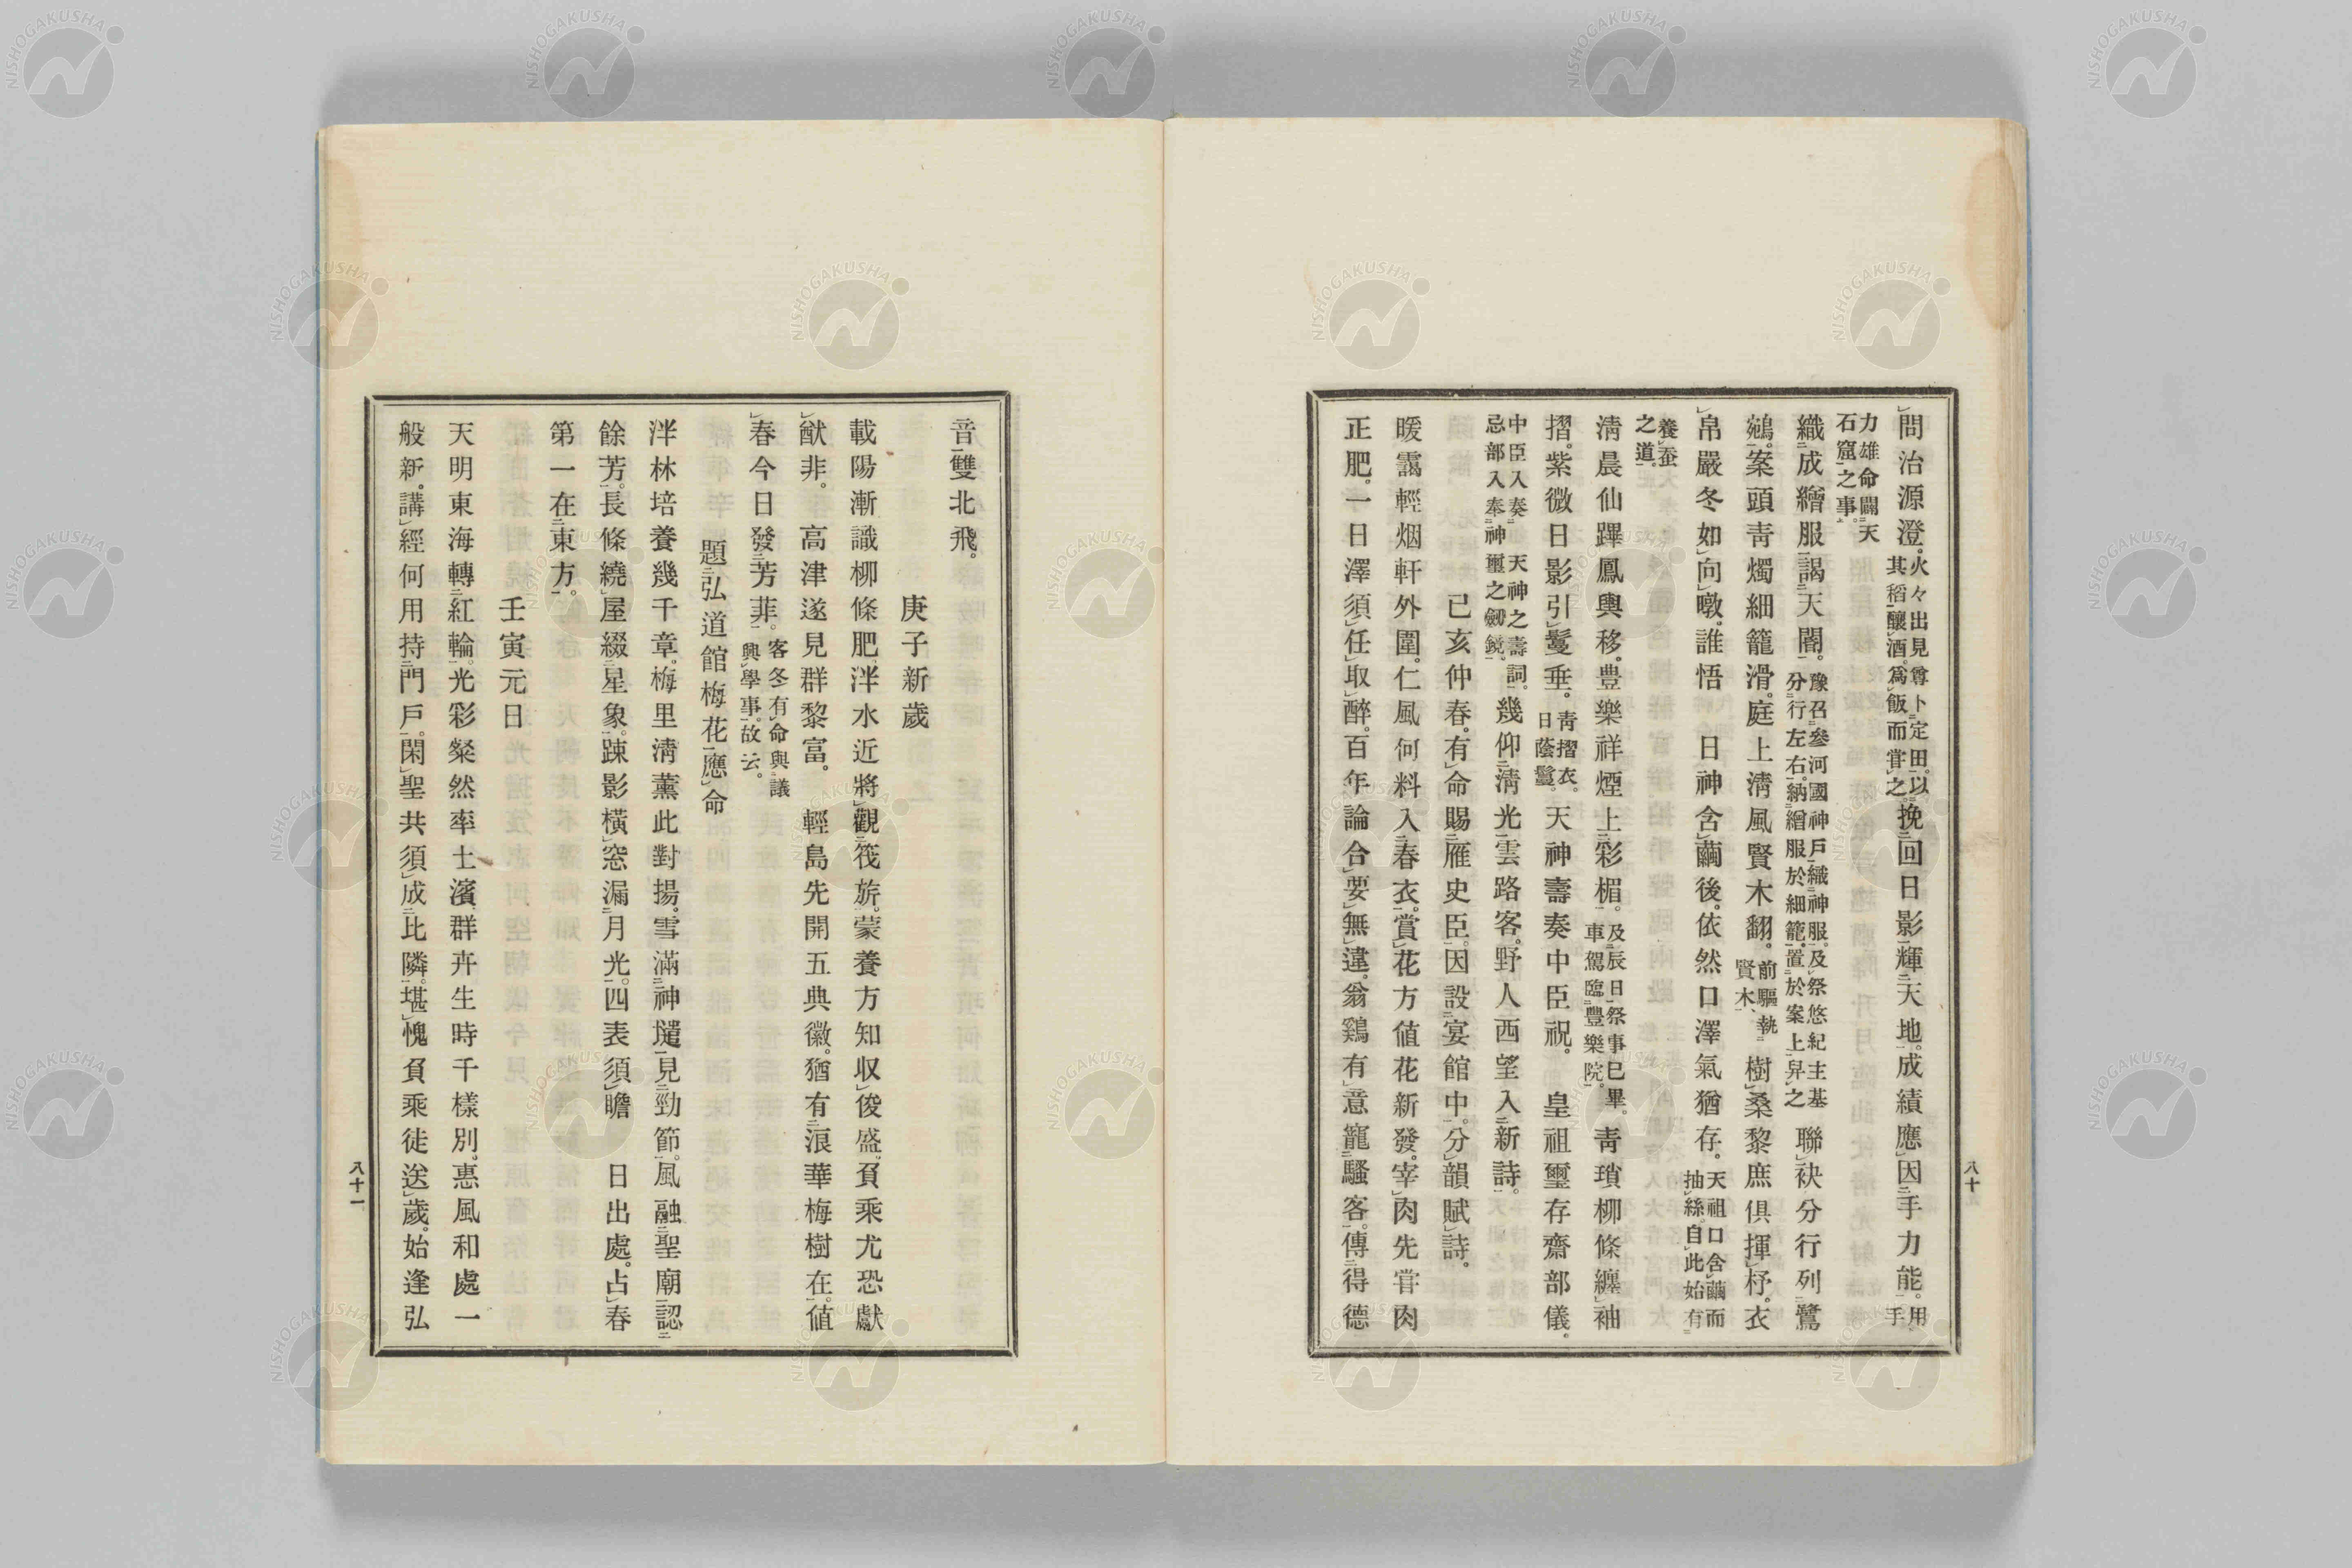 八十
問治源澄。火々出見尊卜定田。以其稻釀酒。爲飯而甞之。挽回日影輝天地。成績應因手力能。用手
力雄命闢天石窟之事。
織成繒服謁天閽。豫召參河國神戶織神服。及祭悠紀主基分行左右。納繒服於細籠。置於案上舁之聯袂分行列鷺
鵷。案頭靑燭細籠滑。庭上淸風賢木翻。前驅執賢木、樹桑黎庶倶揮杼。衣
帛嚴冬如向暾。誰悟 日神含繭後。依然口澤氣猶存。天祖口含繭而抽絲。自此始有
養蚕之道。
淸晨仙蹕鳳輿移。豊樂祥煙上彩楣。及辰日祭事已畢。車駕臨豐樂院。靑瑣柳條纏袖
摺。紫微日影引鬘垂。靑摺衣。日蔭鬘。天神壽奏中臣祝。 皇祖璽存齋部儀。
中臣入奏 天神之壽詞。忌部入奉神璽之劒鏡。幾仰淸光雲路客。野人西望入新詩。
已亥仲春。有命賜雁史臣。因設宴館中。分韻賦詩。
暖靄輕烟軒外圍。仁風何料入春衣。賞花方値花新發。宰肉先甞肉
正肥。一日澤須任取醉。百年論合要無違。翁鷄有意籠騷客。傳得德
音雙北飛。
庚子新歲
載陽漸識柳條肥。泮水近將觀筏旂。蒙養方知収俊盛。負乘尤恐獻
猷非。 高津遂見群黎富。 輕島先開五典徽。猶有浪華梅樹在。値
春今日發芳菲。客冬有命與議興學事。故云。
題弘道館梅花應命
泮林培養幾千章。梅里淸薰此對揚。雪滿神壝見勁節。風融聖廟認
餘芳。長條繞屋綴星象。踈影橫窓漏月光。四表須瞻 日出處。占春
第一在東方。
壬寅元日
天明東海轉紅輪。光彩粲然率士濱。群卉生時千樣別。惠風和處一
般新。講經何用持門戶。閑聖共須成比隣。堪愧負乘徒送歲。始逢弘
八十一
NISHOGAKUSHA